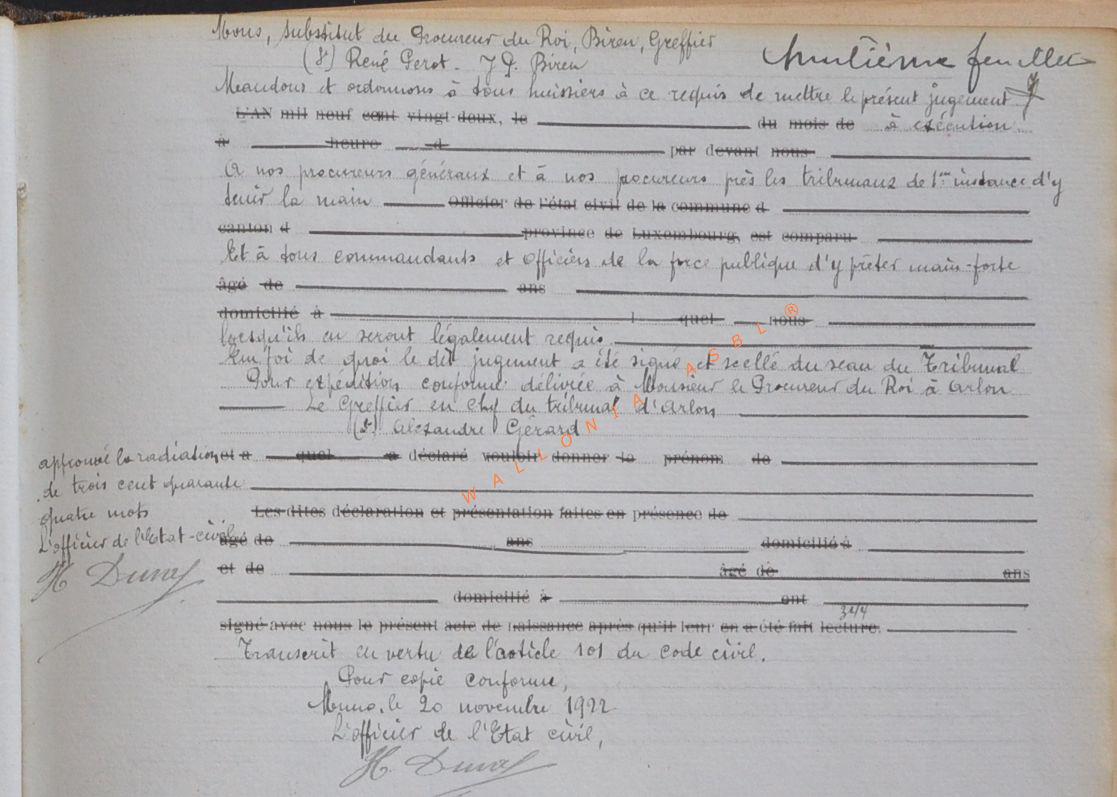 Mons, substitut du Procureur du Roi, Biren, Greffier
(s) René Perot. J P. Biren
huitième feuillet
Mandons et ordonnons à tous huissiers à ce requis de mettre le présent jugement
L'AN mil neuf cent vingt-doux, le du mois de à exécution.
à heure d par devant nous
A nos procureurs généraux et à nos procureurs près les tribunaux de 1re instance d'y
tenir la main Officier de l'état civil de la commune d
canton d province de Luxembourg, est comparu
Et à tous commandants et officiers de la force publique d'y prêter main-forte
âgé de ans
domicilié à l quel nous
lorsqu'ils en seront légalement requis.
En foi de quoi le dit jugement a été signé et scellé du seau du Tribunal
Pour expédition conforme délivrée à Monsieur le Procureur du Roi à Arlon
Le Greffier en chef du tribunal d'Arlon
(s) Alexandre Gérard
approuvé la radiation
de trois cent quarante
quatre mots
L'officier de l'Etat-civil
H. Duval
et a quel a déclaré vouloir donner le prénom de
Les dites déclaration et présentation faites en présence de
âgé de ans domicilié à
et de âgé de ans
domicilié à ont
344
signé avec nous le présent acte de naissance après qu'il leur en a été fait lecture.
Transcrit en vertu de l'article 101 du code civil.
Pour copie conforme,
Muno, le 20 novembre 1922
L'officier de l'Etat civil,
H. Duval
WALLONIA ASBL ®